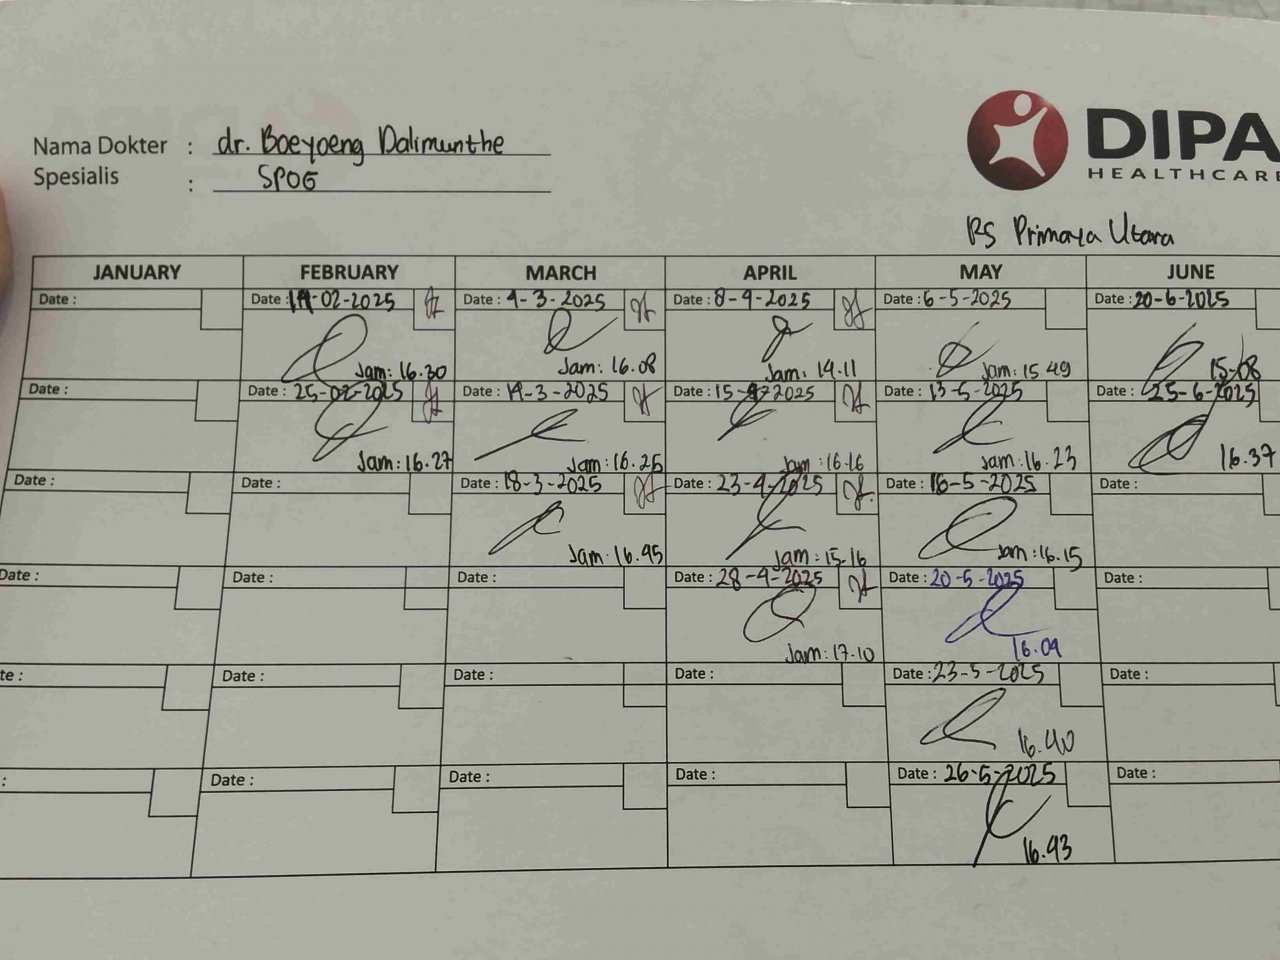 Nama Dokter : dr. Boeyoeng Dalimunthe
Spesialis : SPOG
DIPA
HEALTHCARE
RS Primaya Utara
JANUARY FEBRUARY MARCH APRIL MAY JUNE
Date : Date : 14-02-2025 Date : 4-3-2025 Date : 8-4-2025 Date : 6-5-2025 Date : 20-6-2025
Jam: 16.30 Jam: 16.08 Jam: 14.11 Jam: 15 49 15-08
Date : Date : 25-02-2025 Date : 14-3-2025 Date : 15-4-2025 Date : 13-5-2025 Date : 25-6-2025
Jam: 16.27 Jam: 16.25 Jam: 16.16 Jam: 16.23 16.37
Date : Date : Date : 18-3-2025 Date : 23-4-2025 Date : 16-5-2025 Date :
Jam: 16.45 Jam: 15.16 Jam: 16.15
Date : Date : Date : Date : 28-4-2025 Date : 20-5-2025 Date :
Jam: 17.10 16.09
te : Date : Date : Date : Date : 23-5-2025 Date :
16.40
: Date : Date : Date : Date : 26-5-2025 Date :
16.43